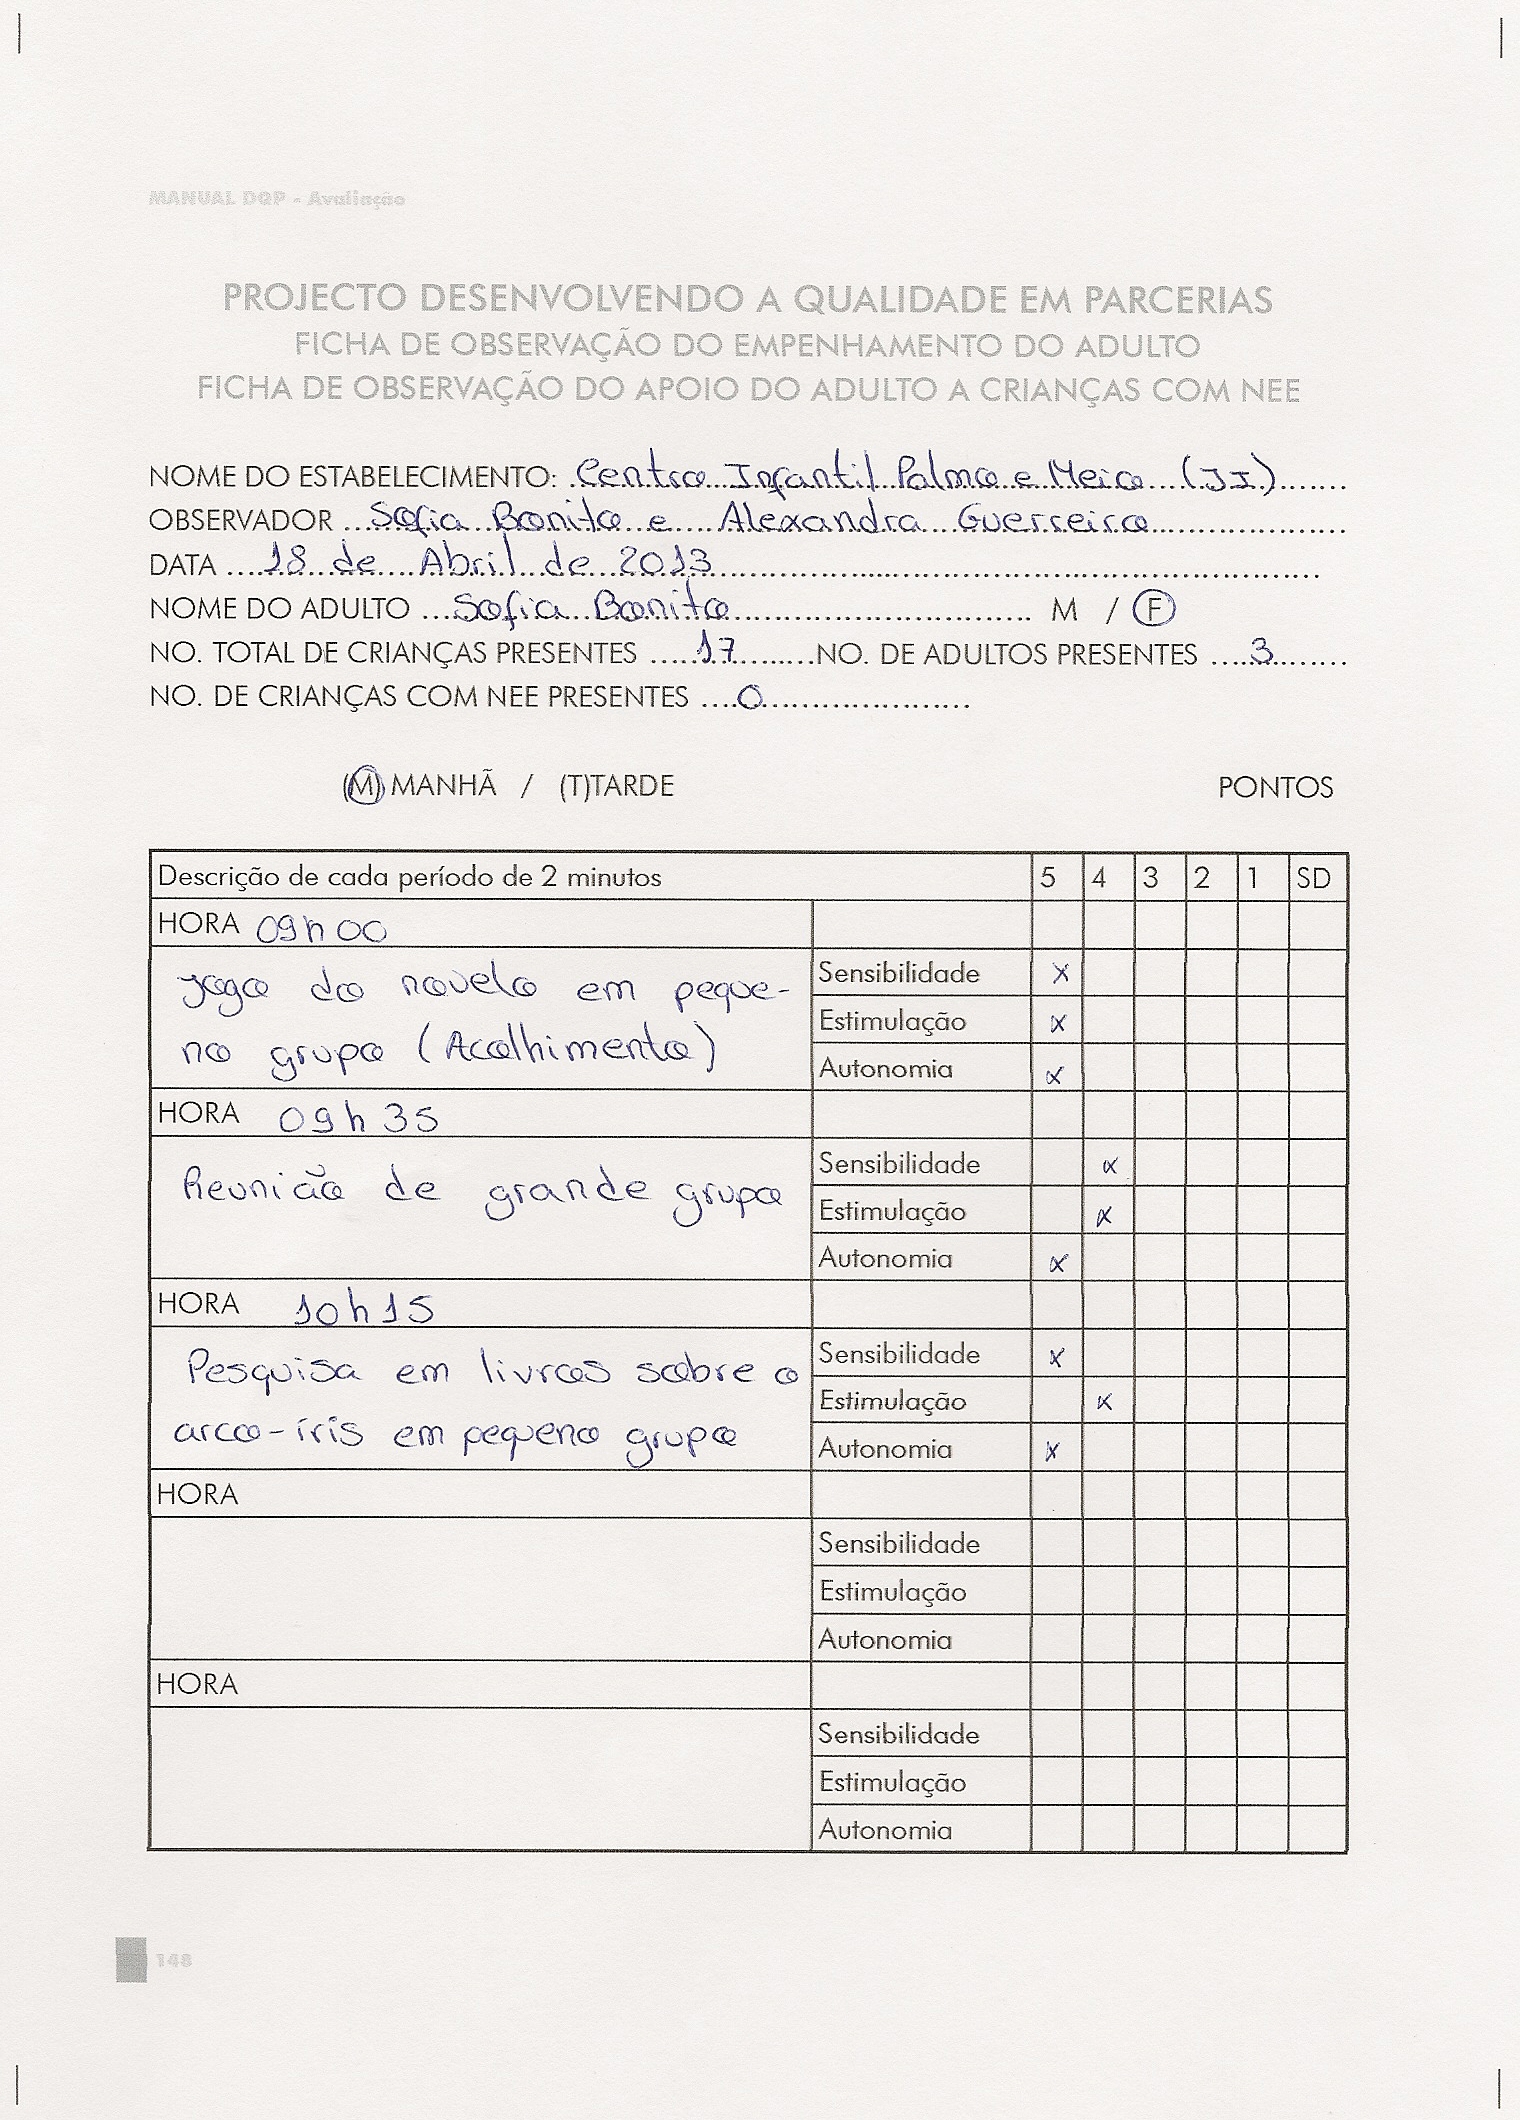 MANUAL DQP - Avaliação
PROJECTO DESENVOLVENDO A QUALIDADE EM PARCERIAS
FICHA DE OBSERVAÇÃO DO EMPENHAMENTO DO ADULTO
FICHA DE OBSERVAÇÃO DO APOIO DO ADULTO A CRIANÇAS COM NEE
NOME DO ESTABELECIMENTO: Centro Infantil Palmo e Meio (JI)
OBSERVADOR Sofia Bonito e Alexandra Guerreiro
DATA 18 de Abril de 2013
NOME DO ADULTO Sofia Bonito M / F
NO. TOTAL DE CRIANÇAS PRESENTES 17 NO. DE ADULTOS PRESENTES 3
NO. DE CRIANÇAS COM NEE PRESENTES 0
(M) MANHÃ / (T)TARDE PONTOS
Descrição de cada período de 2 minutos 5 4 3 2 1 SD
HORA 09h00
Jogo do novelo em peque-
no grupo (Acolhimento)
Sensibilidade x
Estimulação x
Autonomia x
HORA 09h35
Reunião de grande grupo
Sensibilidade x
Estimulação x
Autonomia x
HORA 10h15
Pesquisa em livros sobre o
arco-íris em pequeno grupo
Sensibilidade x
Estimulação x
Autonomia x
HORA
Sensibilidade
Estimulação
Autonomia
HORA
Sensibilidade
Estimulação
Autonomia
148